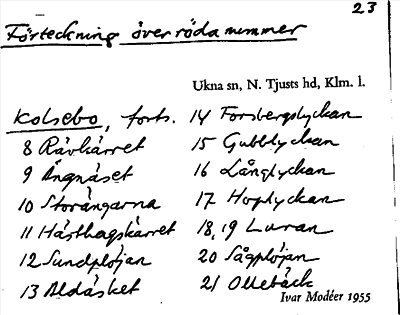 23
Förteckning över röda nummer
Ukna sn, N. Tjusts hd, Klm. l.
Kolsebo, forts.
8 Rävkärret
9 Ängnäset
10 Storängarna
11 Hästhagskärret
12 Sundplöjan
13 Aldåsket
14 Forsbergslyckan
15 Gubblyckan
16 Långlyckan
17 Hoplyckan
18, 19 Luran
20 Sågplöjan
21 Ollebäck
Ivar Modéer 1955